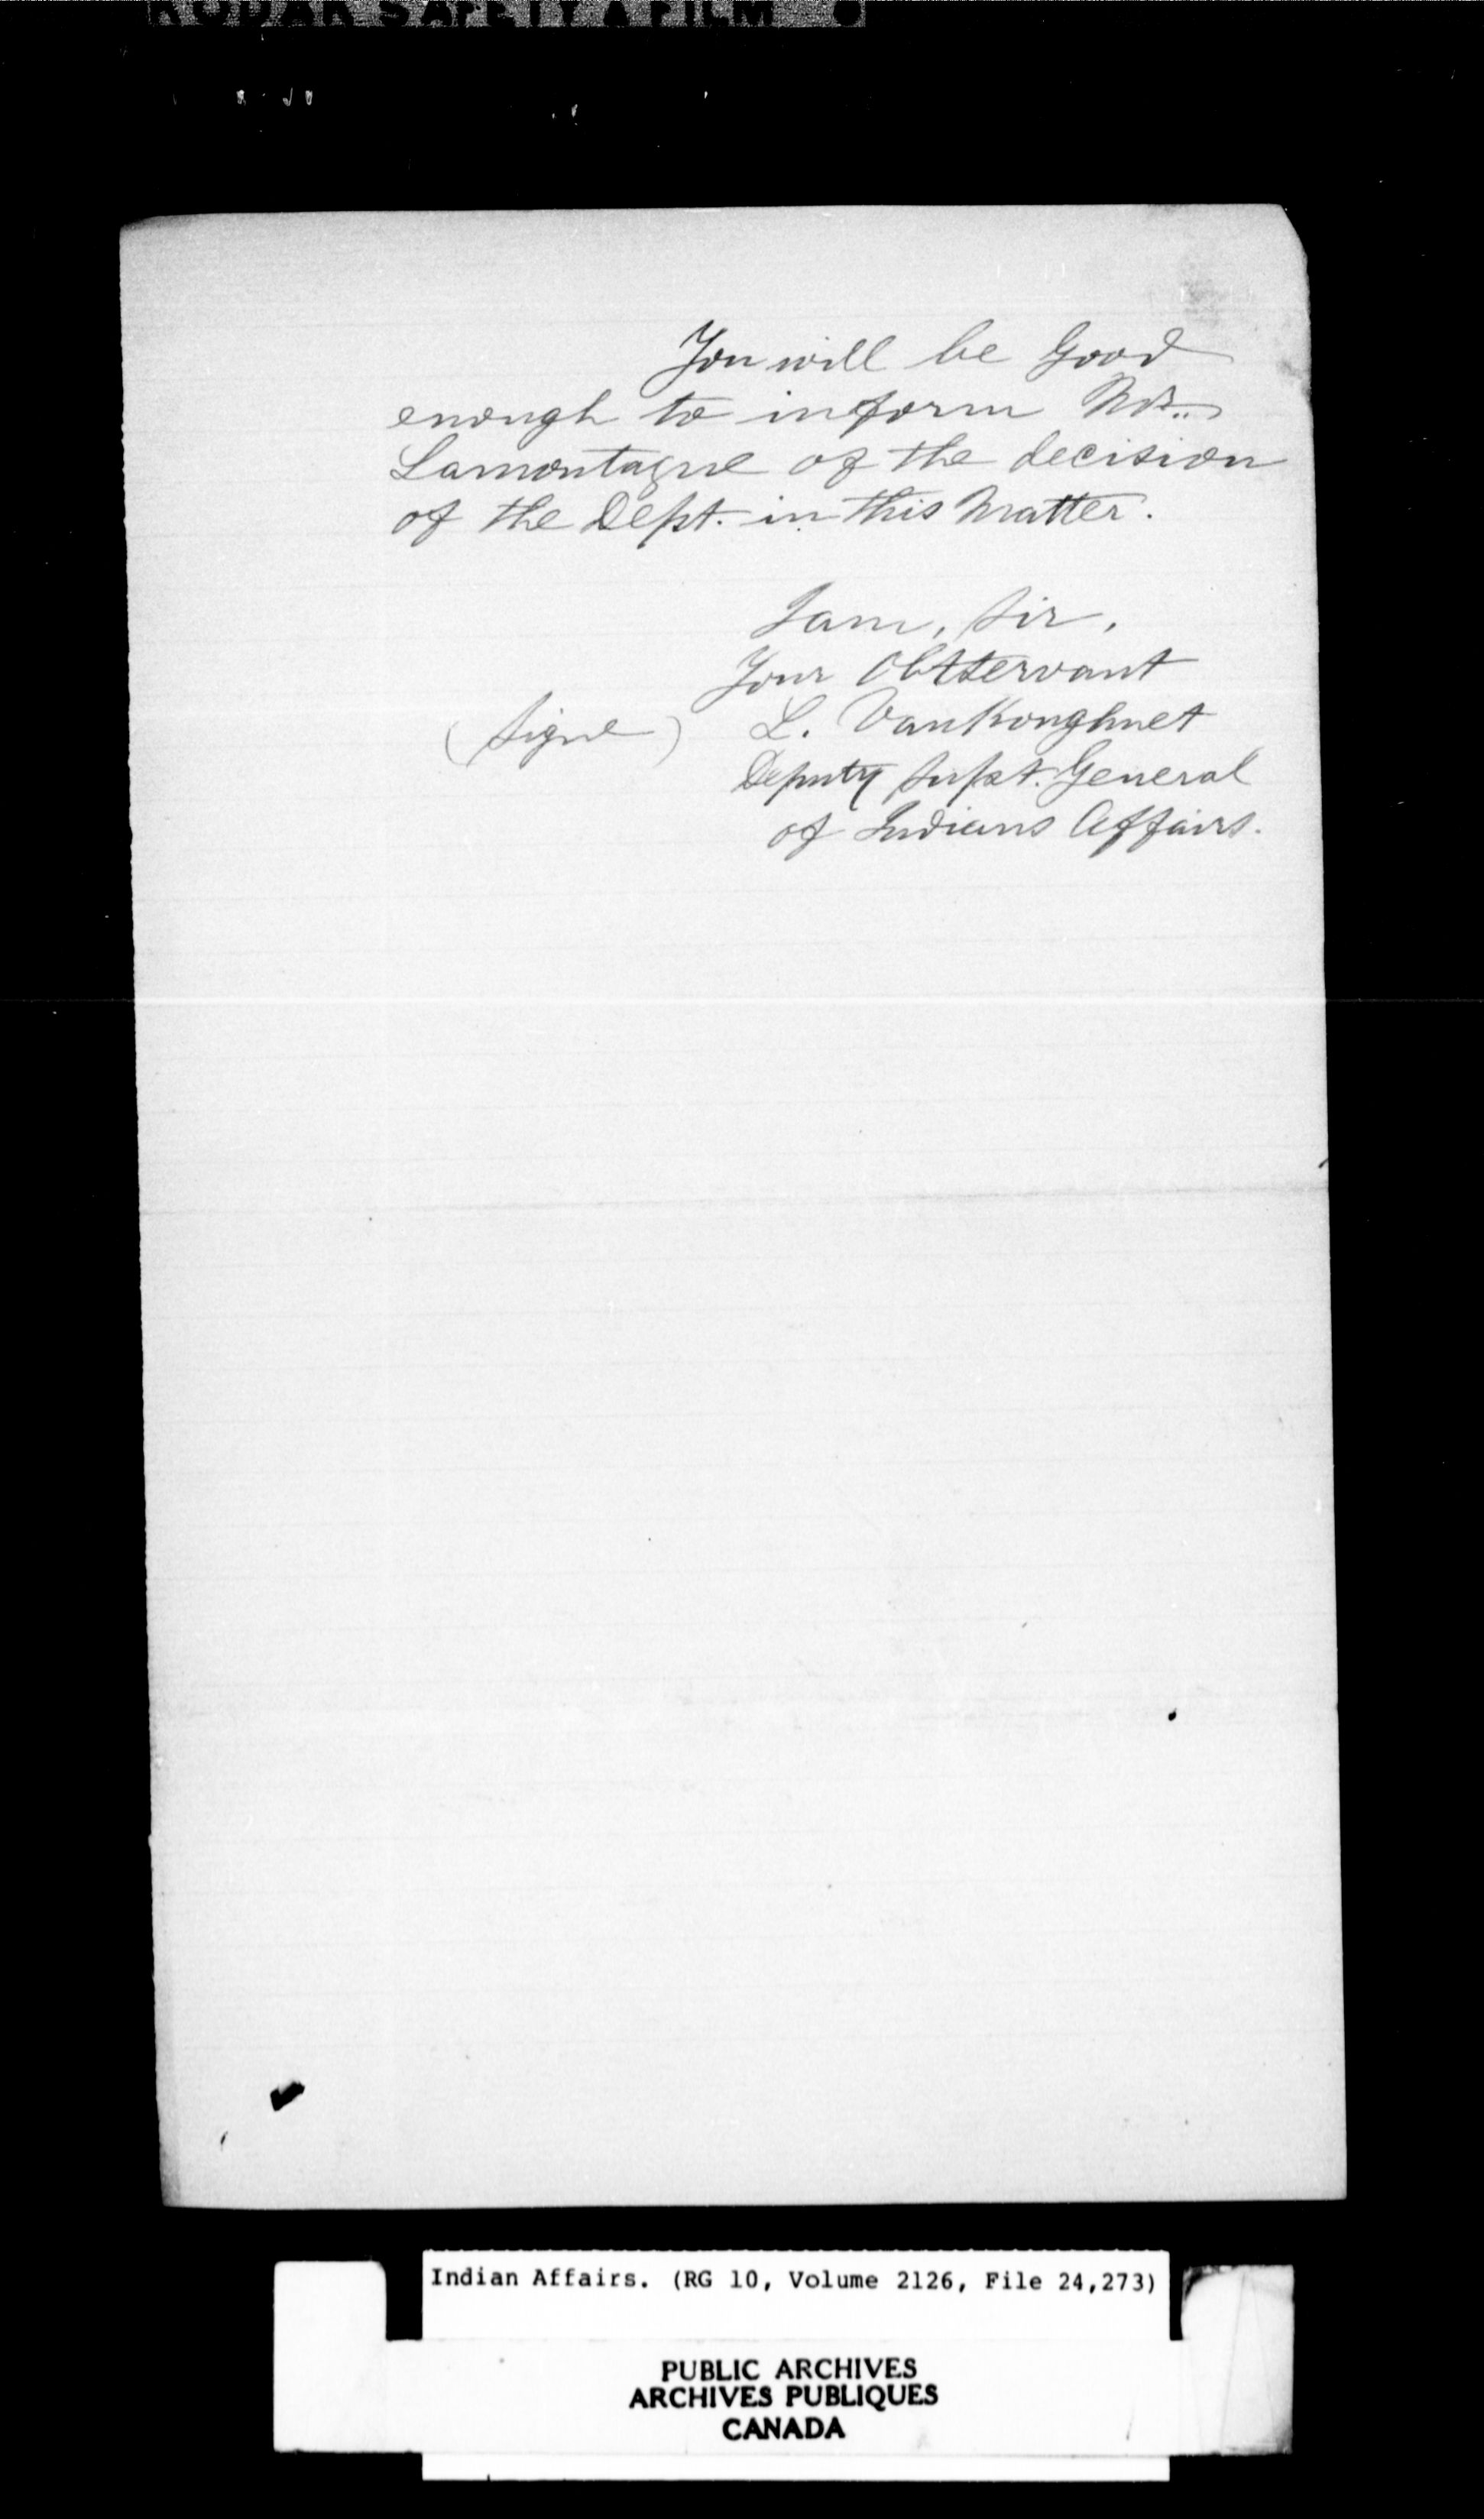 KODAK SAFETY A FILM
You will be Good
enough to inform Mr..
Lamontagne of the decision
of the Dept. in this Matter.
I am, Sir,
Your Obtservant
(Signe) L. VanKoughnet
Deputy Supt. General
of Indians Affairs.
Indian Affairs. (RG 10, Volume 2126, File 24,273)
PUBLIC ARCHIVES
ARCHIVES PUBLIQUES
CANADA